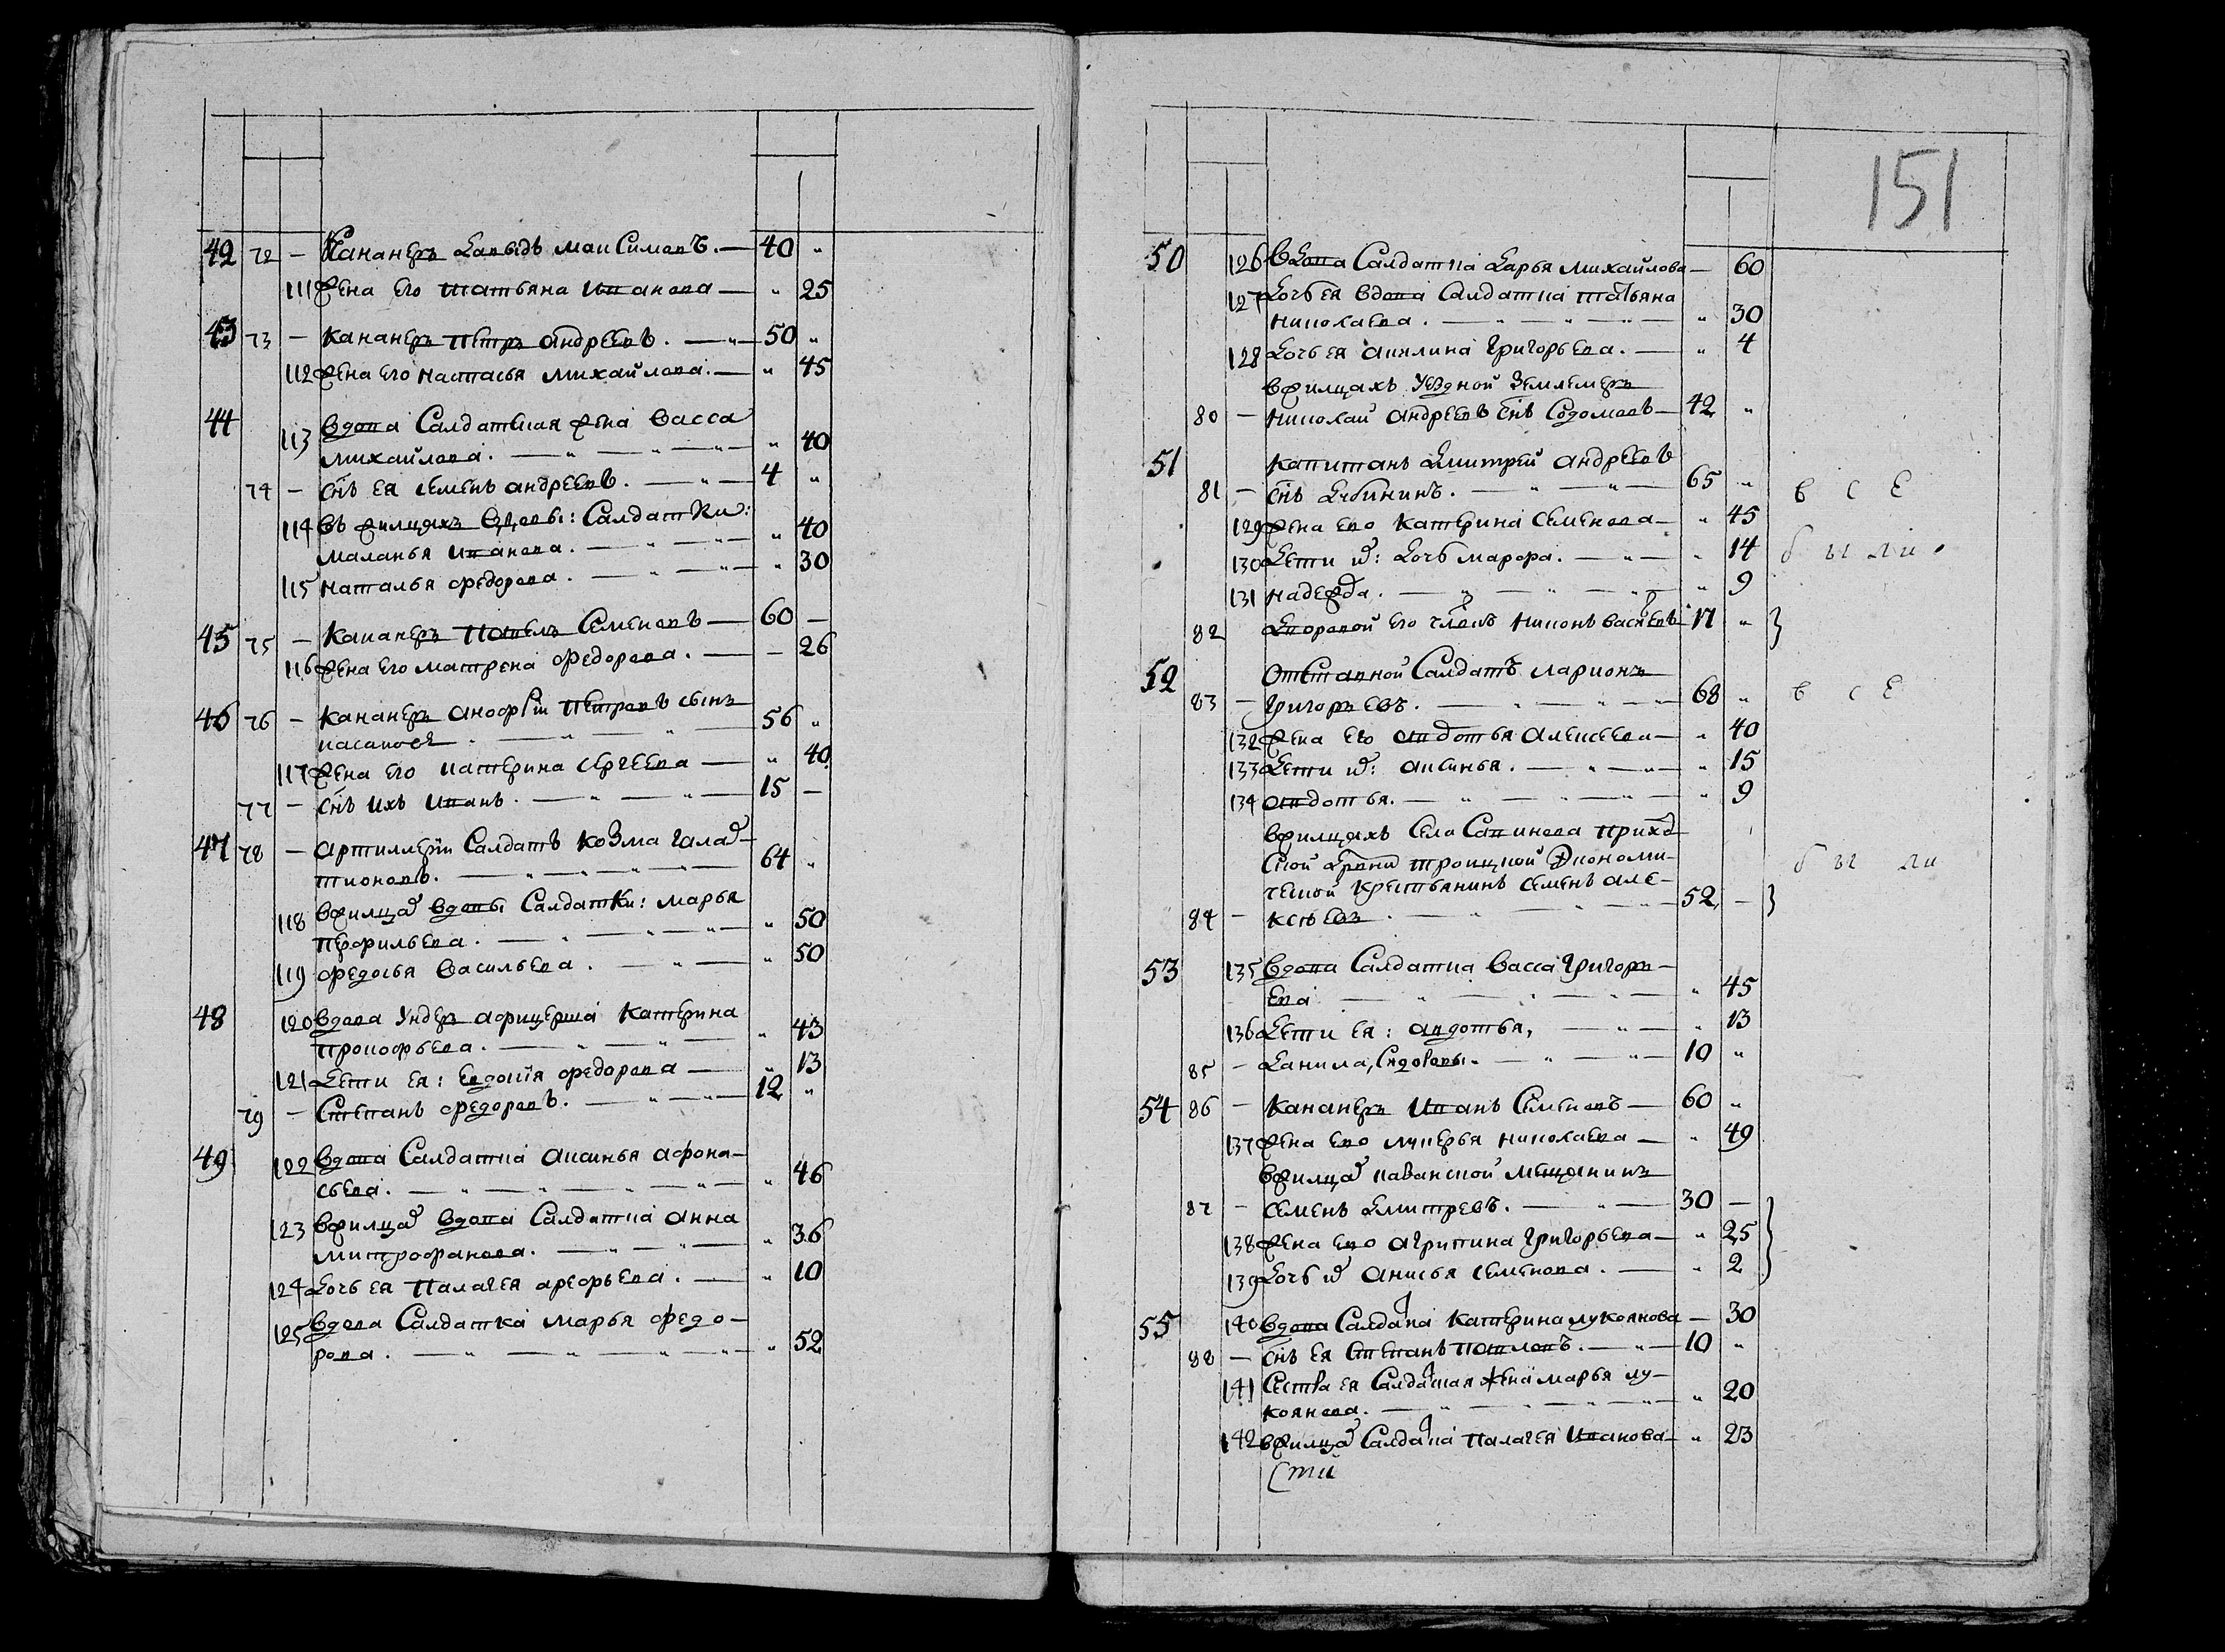 42 72 — Кананеръ Давыдъ Максимовъ. — 40 „
111 Жена ево Татьяна Иванова — „ 25
43 73 — Кананеръ Петръ Андреевъ. — „ — 50 „
112 Жена ево Настасья Михайлова. — „ 45
44
113 Вдова Салдатская жена Васса
Михайлова. — „ — „ — „ 40
74 — Снъ ея Семенъ Андреевъ. — „ — 4 „
114 Въ жилцахъ Вдовы: Салдатки:
Маланья Иванова. — „ — „ — „ 40
115 Наталья Федорова. — „ — „ — „ 30
45 75 — Кананеръ Павелъ Семеновъ — 60 —
116 Жена ево Матрена Федорова. — — 26
46 76 — Кананеръ Анофрiи Петровъ сынъ
56 „
117 Жена ево Катерина Сергеева — „ 40
77 — Снъ ихъ Иванъ. — „ — „ — 15 —
47 78 — Артиллерiи Салдатъ Козма Гала
тионовъ. — „ — „ — „ — 64 „
118 Вжилца вдовы Салдатки: Марья
Перфильева. — „ — „ — „ — „ 50
119 Федосья Васильева. — „ — „ 50
48 120 Вдова Ундеръ афицерша Катерина
Прокофьева. — „ — „ — „ 43
121 Дети ея: Евдокiя Федорова — „ 13
79 — Степанъ Федоровъ. — „ — „ — 12 „
49 122 Вдова Салдатка Аксинья Афона-
сьева. — „ — „ — „ — „ — „ 46
123 Вжилца вдова Салдатка Анна
Митрофанова. — „ — „ — „ 36
124 Дочь ея Палагея Арефьева. — „ 10
125 Вдова Салдатка Марья Федо-
рова. — „ — „ — „ — „ — „ 52
151
50 126 Вдова Салдатка Дарья Михайлова — 60
127 Дочь ея вдова Салдатка Татьяна
Николаева. — „ — „ — „ — „ 30
128 Дочь ея Акилина Григорьева. — „ 4
Вжилцахъ Уездной Землемеръ
80 — Николай Андреевъ снъ Содомовъ — 42 „
51 Капитанъ Дмитрей Андреевъ
81 — снъ Дябининъ. — „ — „ — 65 „ в с е
129 Жена ево Катерина Семенова — „ 45
130 Дети их: Дочь Марфа. — „ — „ 14 б ы ли
131 Надежда. — „ — „ — „ — „ 9
82 Дворовой ево члвкъ Никонъ Васильевъ 17 „ }
52 Отставной Салдатъ Ларионъ
83 — Григорьевъ. — „ — „ — „ — 68 „ в с е
132 Жена ево Авдотья Алексеева — „ 40
133 Дети их: Аксинья. — „ — „ — „ 15
134 Авдотья. — „ — „ — „ — „ 9
Вжилцахъ Села Савинова приход
ской Троицкой Экономи-
ческой Крестьянинъ Семенъ Але- б ы ли
84 — ксеевъ. — „ — „ — „ — 52 — }
53 135 Вдова Салдатка Васса Григорь-
ева — „ — „ — „ — „ 45
136 Дети ея: Авдотья, — „ — „ 13
85 — Данила, — „ — „ — 10 „
54 86 — Кананеръ Иванъ Семеновъ — 60 „
137 Жена ево Лукерья Николаева — „ 49
Вжилца Казанской Мещанинъ
87 — Семенъ Дмитревъ. — „ — 30 —
138 Жена ево Агрипина Григорьева — „ 25 }
139 Дочь их Анисья Семенова. — „ 2
55 140 Вдова Салдатка Катерина Лукоянова — 30
88 — Снъ ея Степанъ Павловъ. — „ — 10 „
141 Сестра ея Салдатская жена Марья Лу-
коянова. — „ — „ — „ — „ 20
142 Вжилца Салдатка Палагея Иванова — „ 23